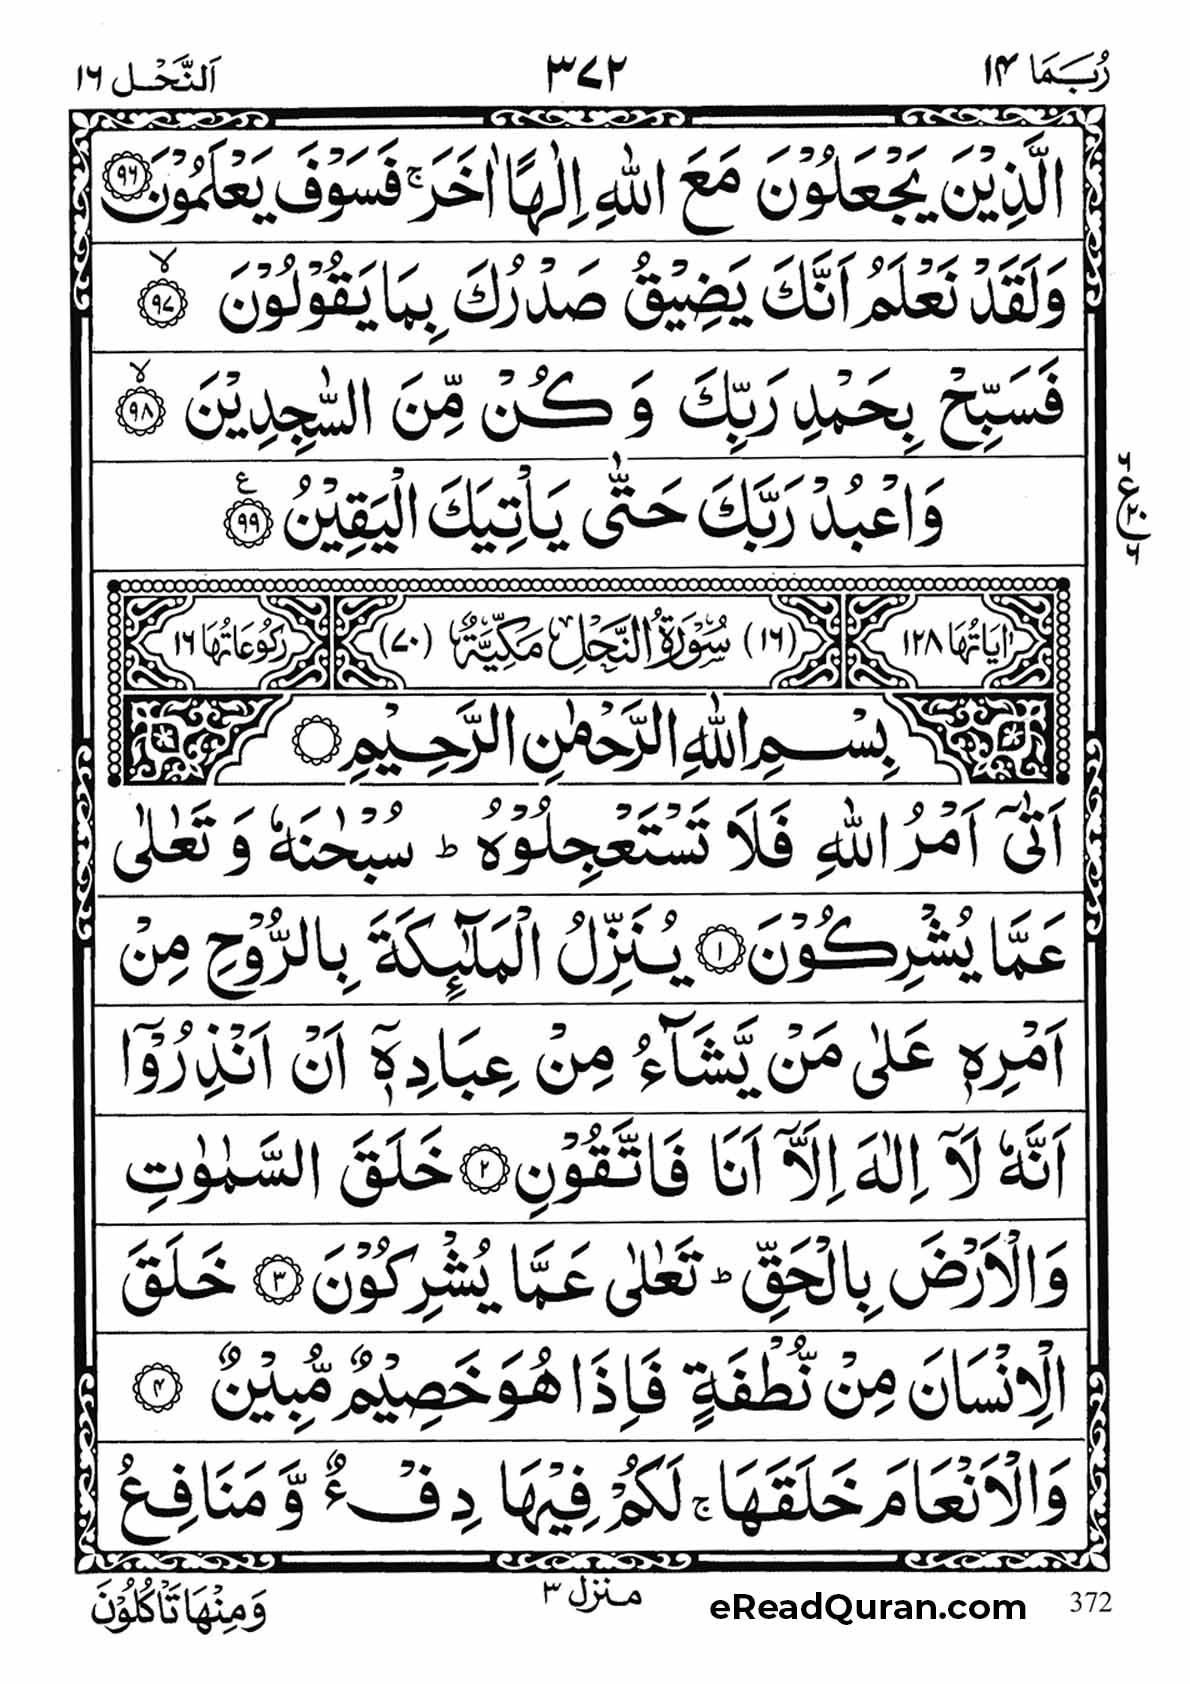 رُبَمَا ١٤
٣٧٢
اَلنَّحْل ١٦
الَّذِيْنَ يَجْعَلُوْنَ مَعَ اللّٰهِ اِلٰهًا اٰخَرَ ۚ فَسَوْفَ يَعْلَمُوْنَ ٩٦
وَلَقَدْ نَعْلَمُ اَنَّكَ يَضِيْقُ صَدْرُكَ بِمَا يَقُوْلُوْنَ ۙ ٩٧
فَسَبِّحْ بِحَمْدِ رَبِّكَ وَ كُنْ مِّنَ السّٰجِدِيْنَ ۙ ٩٨
وَاعْبُدْ رَبَّكَ حَتّٰى يَاْتِيَكَ الْيَقِيْنُ ع ٩٩
٦
ع ٢٠
٦
اٰيَاتُهَا ١٢٨
(١٦) سُوْرَةُ النَّحْلِ مَكِّيَّةٌ (٧٠)
رُكُوْعَاتُهَا ١٦
بِسْمِ اللّٰهِ الرَّحْمٰنِ الرَّحِيْمِ
اَتٰۤى اَمْرُ اللّٰهِ فَلَا تَسْتَعْجِلُوْهُ ؕ سُبْحٰنَهٗ وَ تَعٰلٰى
عَمَّا يُشْرِكُوْنَ ١ يُنَزِّلُ الْمَلٰٓئِكَةَ بِالرُّوْحِ مِنْ
اَمْرِهٖ عَلٰى مَنْ يَّشَآءُ مِنْ عِبَادِهٖۤ اَنْ اَنْذِرُوْۤا
اَنَّهٗ لَاۤ اِلٰهَ اِلَّاۤ اَنَا فَاتَّقُوْنِ ٢ خَلَقَ السَّمٰوٰتِ
وَالْاَرْضَ بِالْحَقِّ ؕ تَعٰلٰى عَمَّا يُشْرِكُوْنَ ٣ خَلَقَ
الْاِنْسَانَ مِنْ نُّطْفَةٍ فَاِذَا هُوَ خَصِيْمٌ مُّبِيْنٌ ٤
وَالْاَنْعَامَ خَلَقَهَا ۚ لَكُمْ فِيْهَا دِفْءٌ وَّ مَنَافِعُ
وَمِنْهَا تَاْكُلُوْنَ
منزل ٣
eReadQuran.com
372